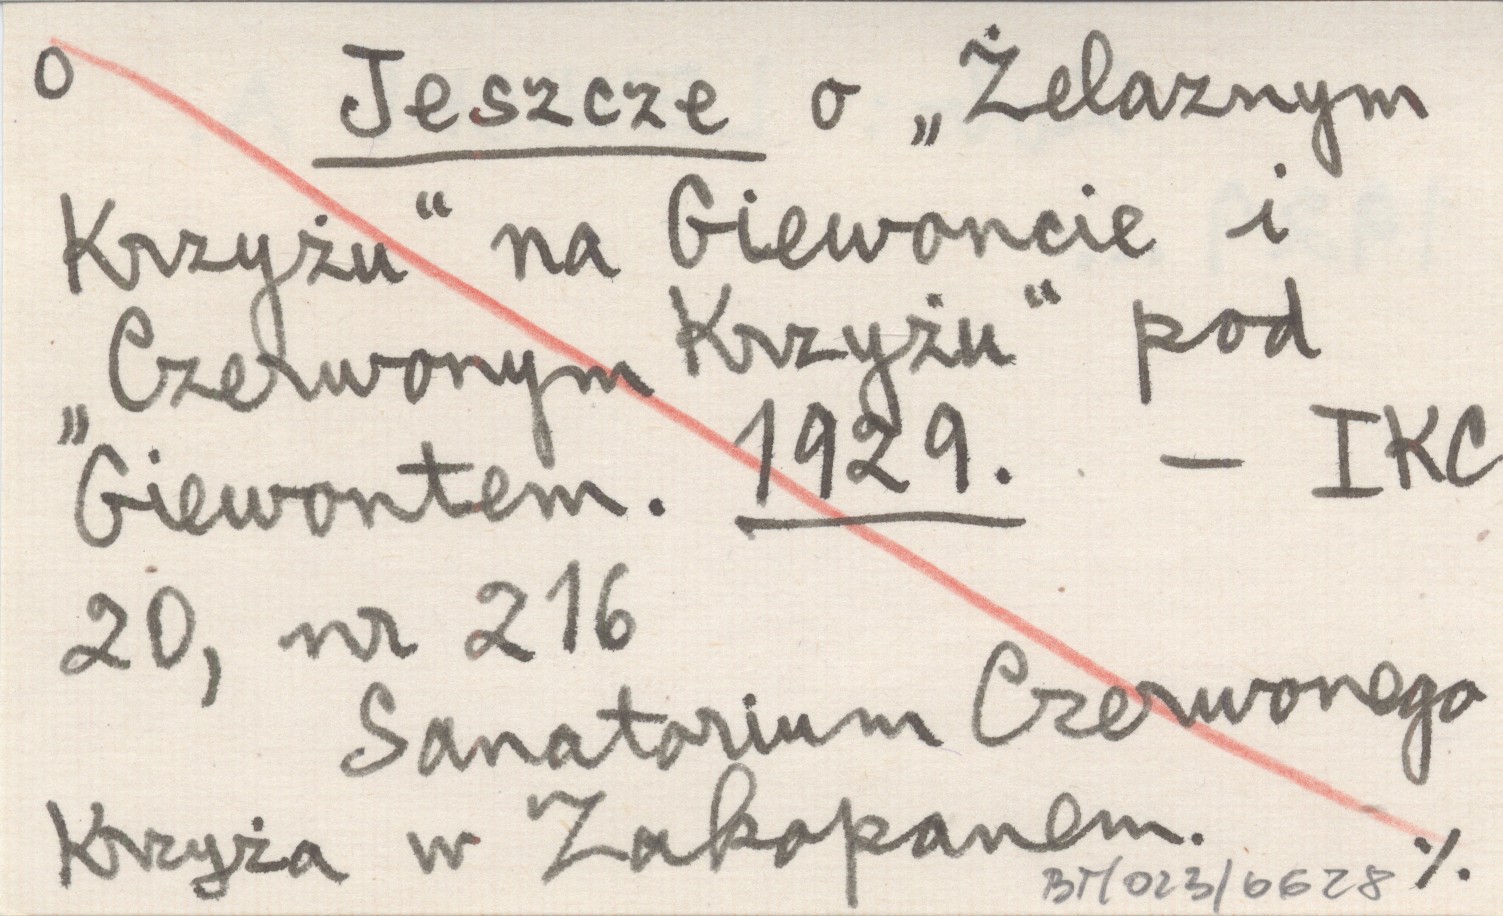 o Jeszcze o „Żelaznym
Krzyżu“ na Giewoncie i
„Czerwonym Krzyżu“ pod
Giewontem. 1929. – IKC
20, nr 216
Sanatorium Czerwonego
Krzyża w Zakopanem.
BM/023/6628 ./.